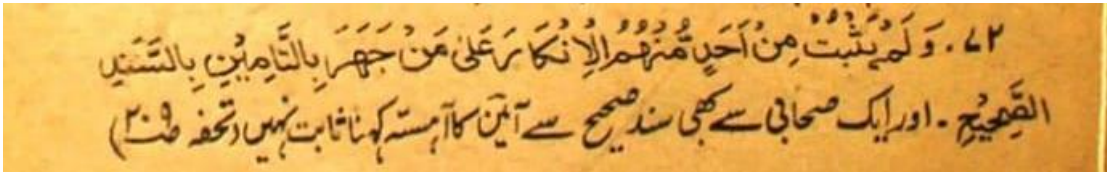 ۷۲. وَلَمْ يَثْبُتْ مِنْ اَحَدٍ مِّنْهُمُ الْاِنْكَارُ عَلٰى مَنْ جَهَرَ بِالتَّامِيْنِ بِالسَّنَدِ
الصَّحِيْحِ ۔ اور ایک صحابی سے بھی سند صحیح سے آمین کا آہستہ کہنا ثابت نہیں (تحفہ ص۲۰۹)